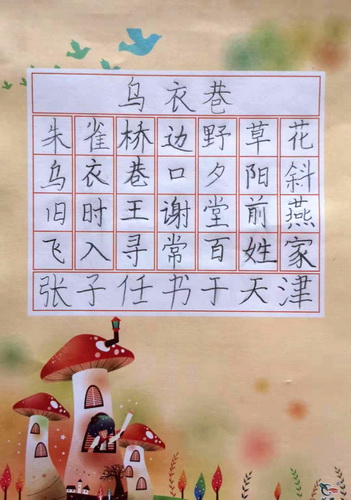 乌衣巷
朱雀桥边野草花
乌衣巷口夕阳斜
旧时王谢堂前燕
飞入寻常百姓家
张子任书于天津